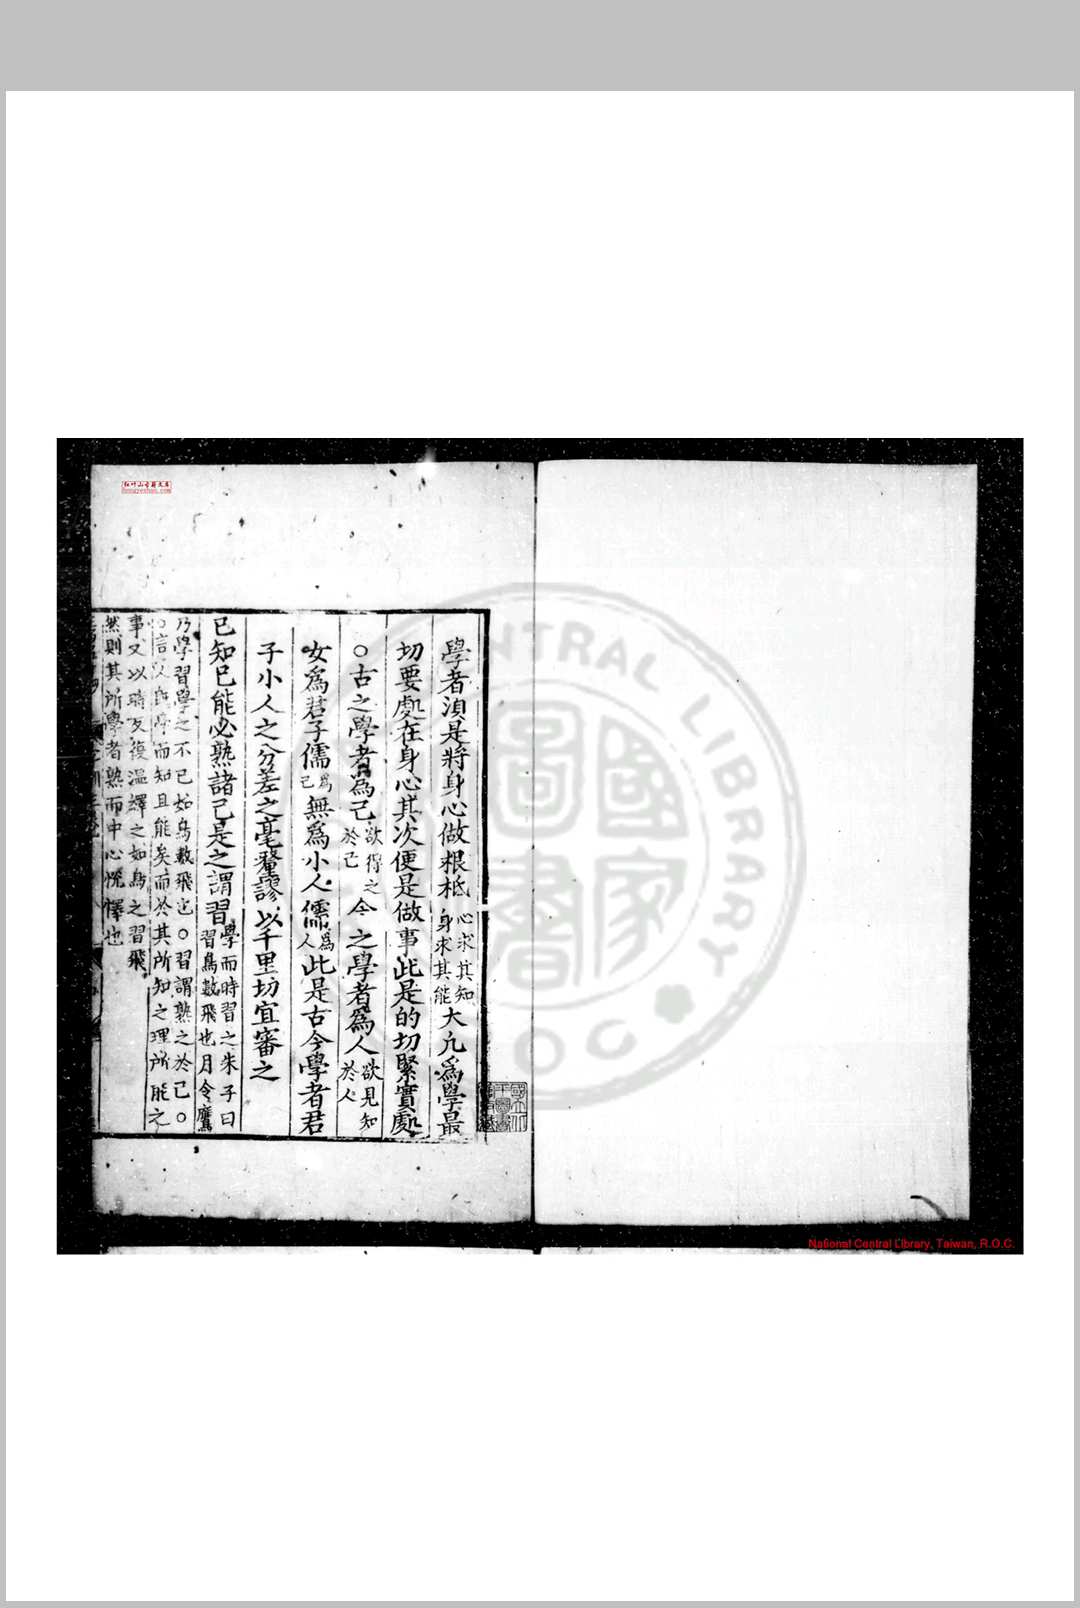 學者湏是將身心做根柢心求其知身求其能大凢爲學最
切要處在身心其次便是做事此是的切緊實處
○古之學者為己欲得之於己今之學者爲人欲見知於人
女爲君子儒爲己無爲小人儒爲人此是古今學者君
子小人之分差之毫釐謬以千里切宜審之
已知已能必熟諸己是之謂習學而時習之朱子曰習鳥數飛也月令鷹
乃學習學之不已如鳥數飛也○習謂熟之於己○
言以既學而知且能矣而於其所知之理所能之
事又以時反復溫繹之如鳥之習飛
然則其所學者熟而中心悅懌也
CENTRAL LIBRARY
國家圖書
National Central Library, Taiwan, R.O.C.